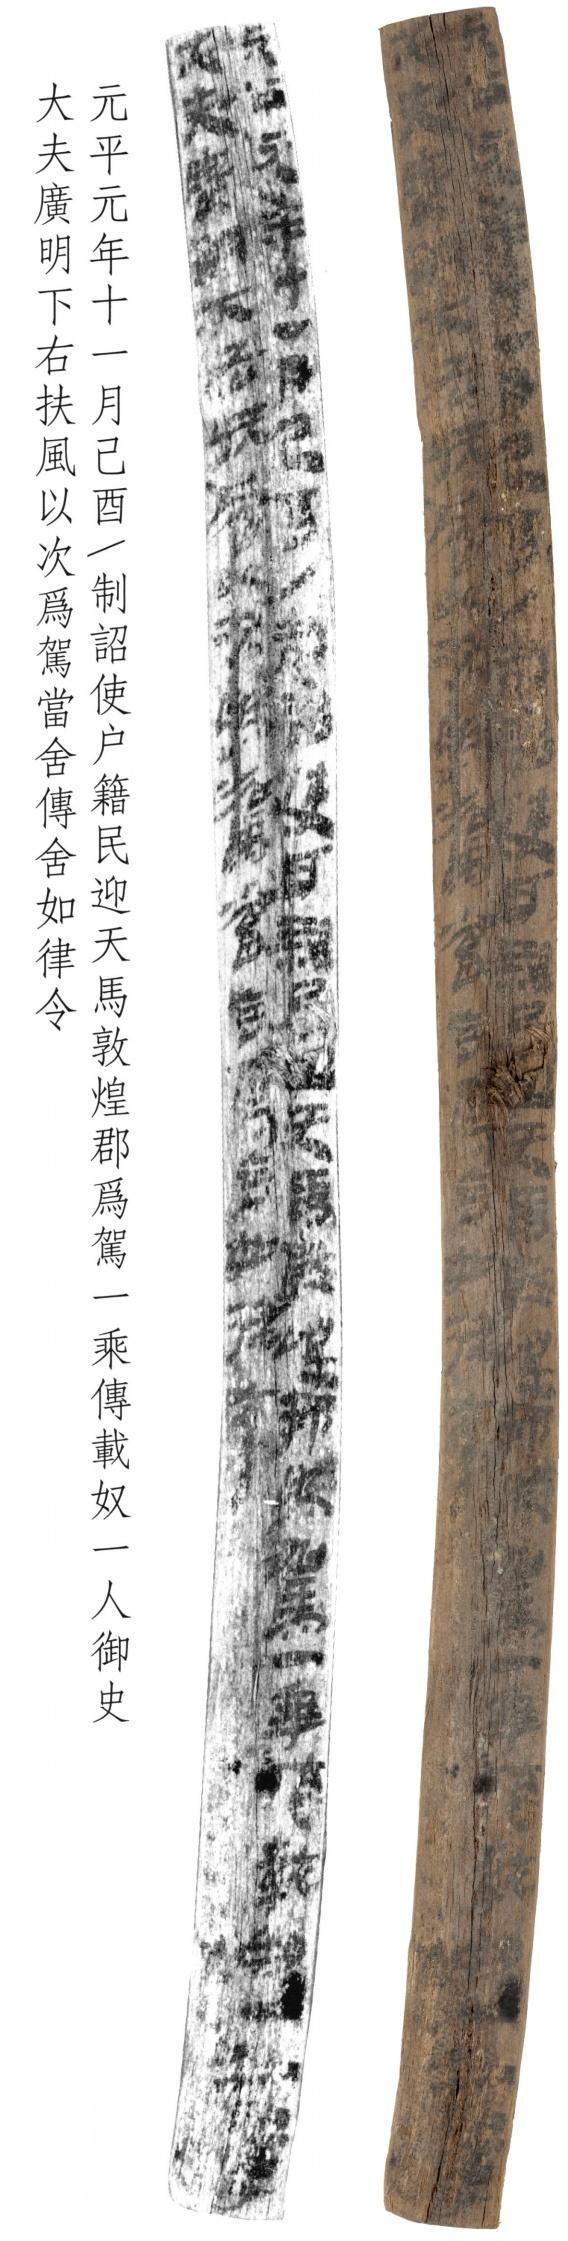 元平元年十一月己酉〳制詔使户籍民迎天馬敦煌郡爲駕一乘傳載奴一人御史
大夫廣明下右扶風以次爲駕當舍傳舍如律令